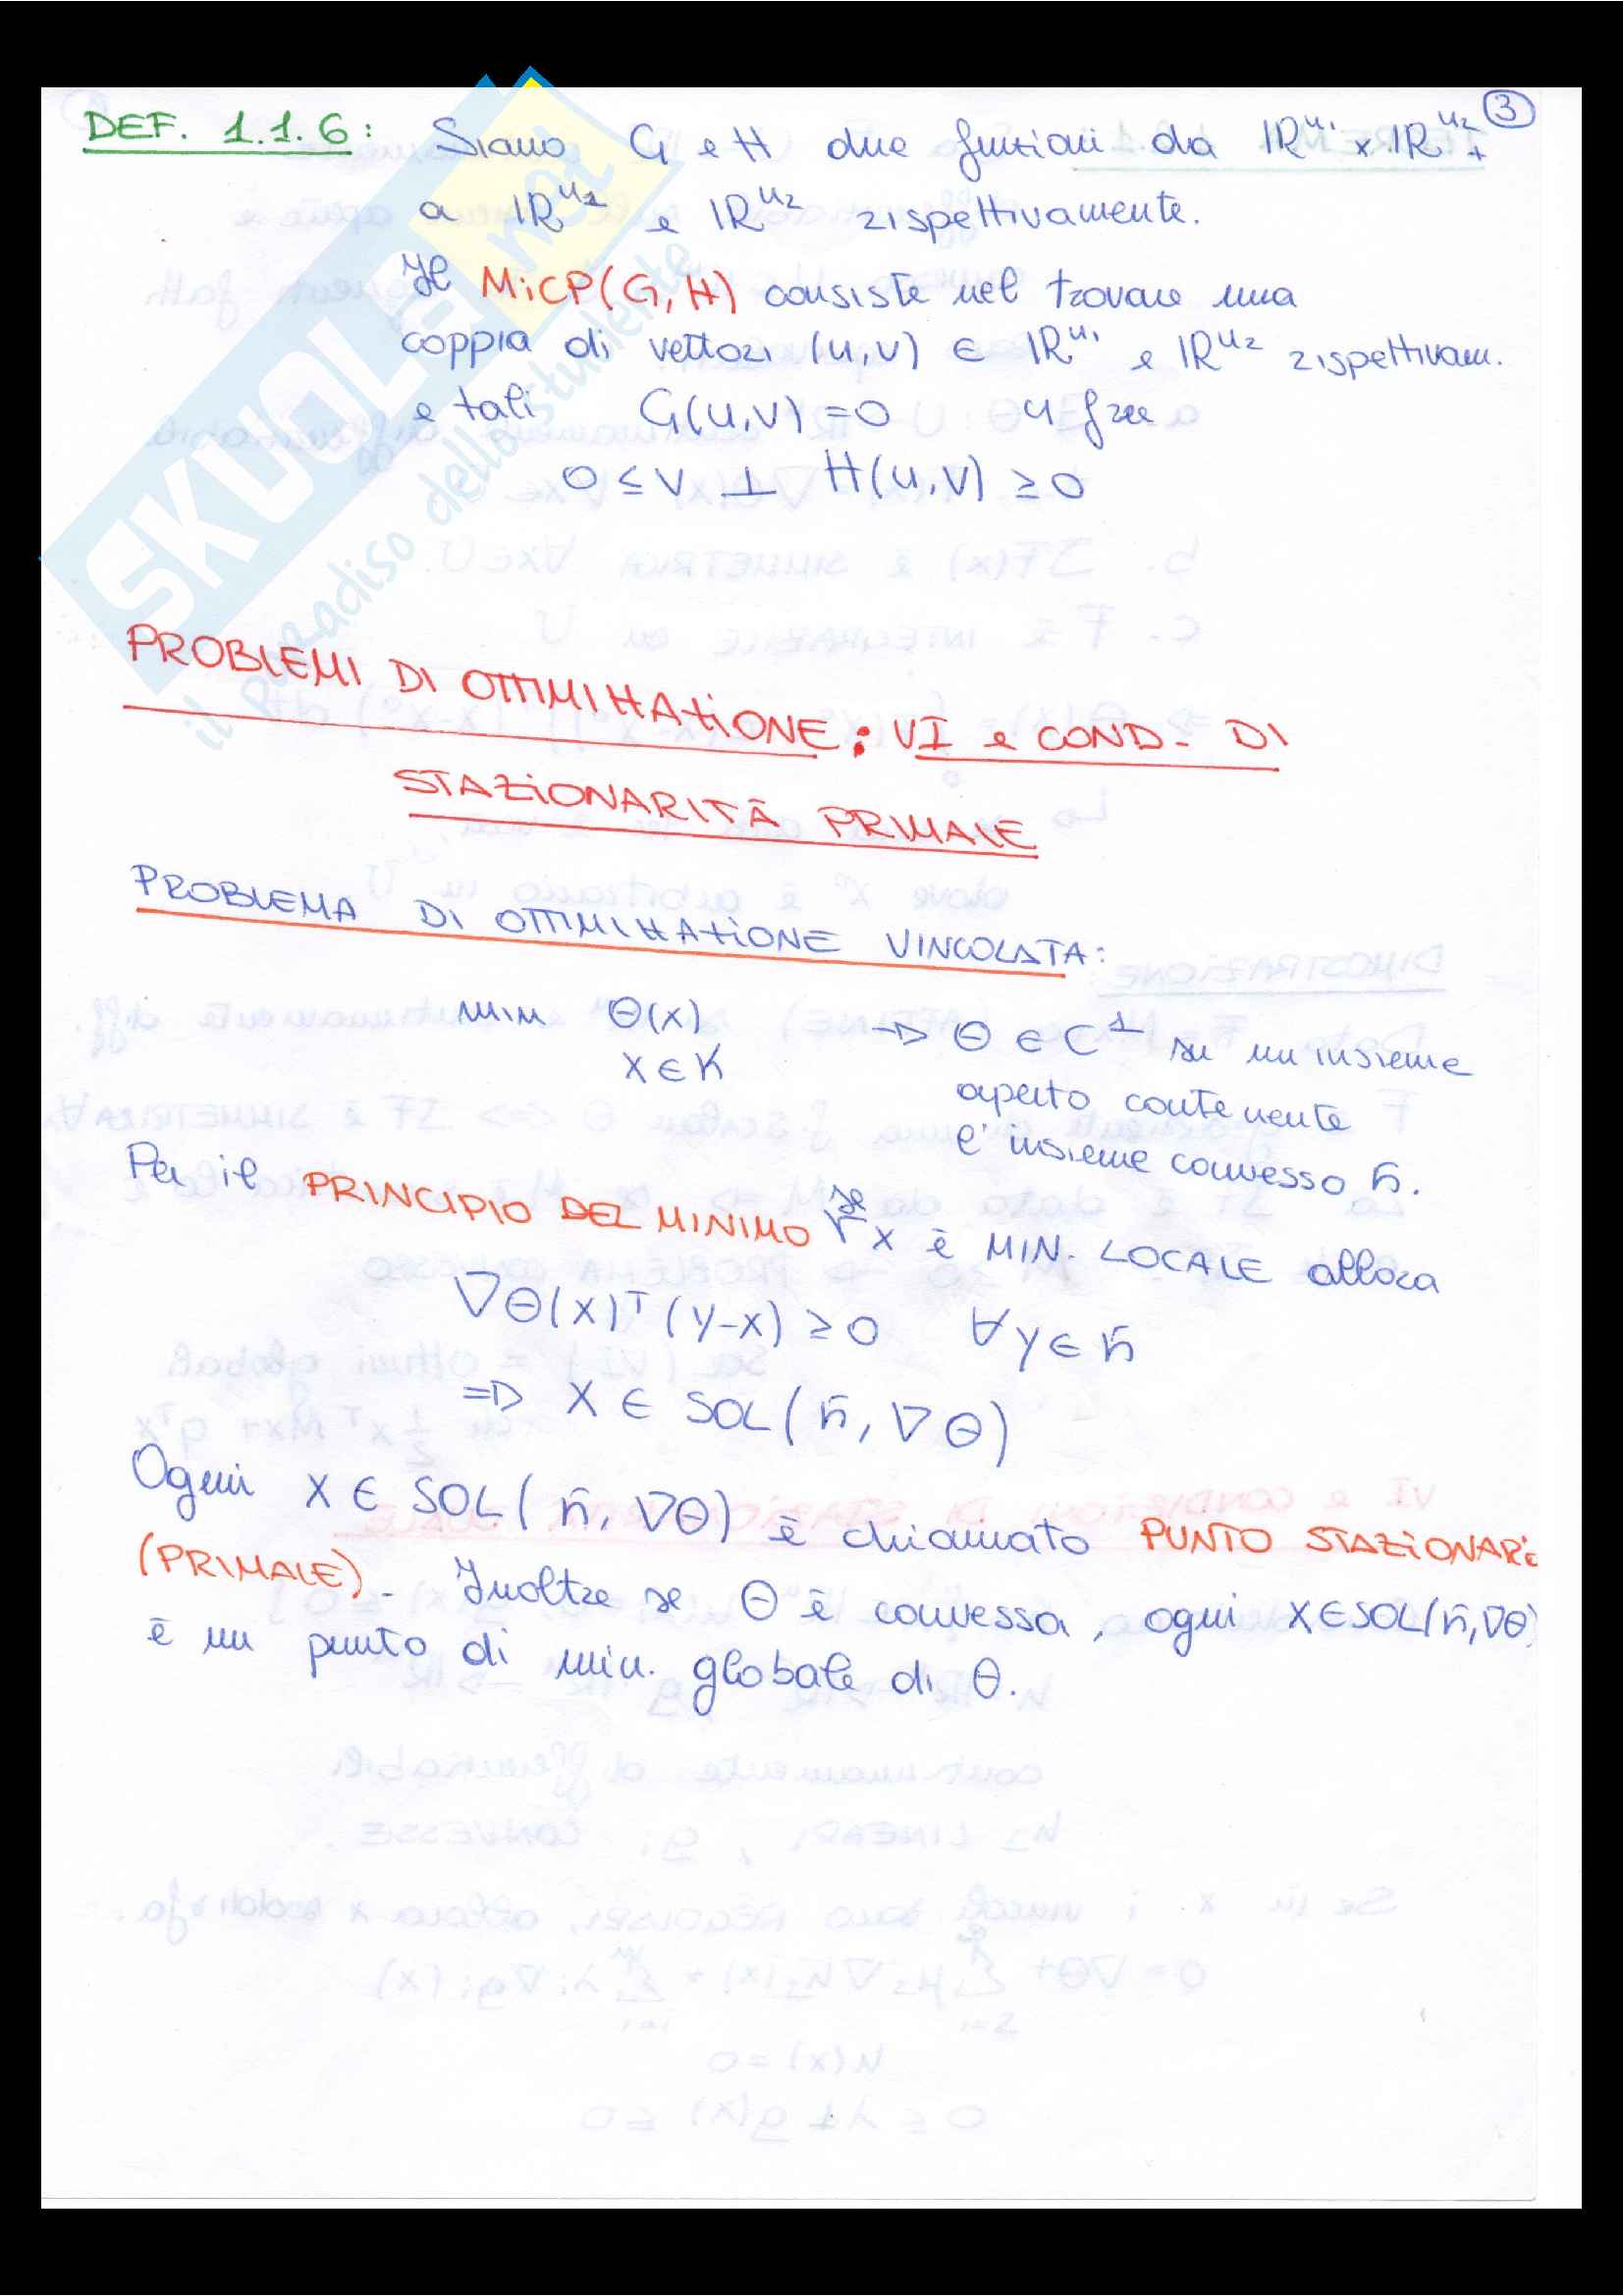 3
DEF. 1.1.6: Siano G e H due funzioni da IRⁿ¹ x IRⁿ²₊
a IRⁿ¹ e IRⁿ² rispettivamente.
Il MiCP(G,H) consiste nel trovare una
coppia di vettori (u,v) ∈ IRⁿ¹ e IRⁿ² rispettivam.
e tali G(u,v) = 0 u free
0 ≤ v ⊥ H(u,v) ≥ 0
PROBLEMI DI OTTIMIZZAZIONE: VI e COND. DI
STAZIONARITÀ PRIMALE
PROBLEMA DI OTTIMIZZAZIONE VINCOLATA:
min θ(x) → θ ∈ C¹ su un insieme
x ∈ K aperto contenente
l'insieme convesso K.
Per il PRINCIPIO DEL MINIMO se x è MIN. LOCALE allora
∇θ(x)ᵀ(y-x) ≥ 0 ∀y ∈ K
⇒ x ∈ SOL(K, ∇θ)
Ogni x ∈ SOL(K, ∇θ) è chiamato PUNTO STAZIONARI
(PRIMALE). Inoltre se θ è convessa, ogni x∈SOL(K,∇θ)
è un punto di min. globale di θ.
SKUOLA.net
il paradiso dello studente